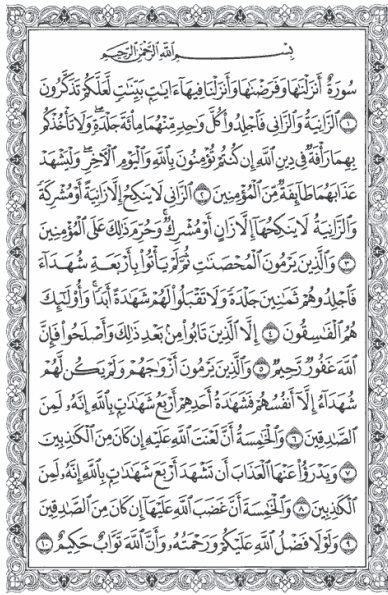 بِسْمِ اللَّهِ الرَّحْمَٰنِ الرَّحِيمِ
سُورَةٌ أَنزَلْنَٰهَا وَفَرَضْنَٰهَا وَأَنزَلْنَا فِيهَآ ءَايَٰتٍۭ بَيِّنَٰتٍ لَّعَلَّكُمْ تَذَكَّرُونَ
١ ٱلزَّانِيَةُ وَٱلزَّانِى فَٱجْلِدُوا۟ كُلَّ وَٰحِدٍ مِّنْهُمَا مِا۟ئَةَ جَلْدَةٍ وَلَا تَأْخُذْكُم
بِهِمَا رَأْفَةٌ فِى دِينِ ٱللَّهِ إِن كُنتُمْ تُؤْمِنُونَ بِٱللَّهِ وَٱلْيَوْمِ ٱلْءَاخِرِ وَلْيَشْهَدْ
عَذَابَهُمَا طَآئِفَةٌ مِّنَ ٱلْمُؤْمِنِينَ ٢ ٱلزَّانِى لَا يَنكِحُ إِلَّا زَانِيَةً أَوْ مُشْرِكَةً
وَٱلزَّانِيَةُ لَا يَنكِحُهَآ إِلَّا زَانٍ أَوْ مُشْرِكٌ وَحُرِّمَ ذَٰلِكَ عَلَى ٱلْمُؤْمِنِينَ
٣ وَٱلَّذِينَ يَرْمُونَ ٱلْمُحْصَنَٰتِ ثُمَّ لَمْ يَأْتُوا۟ بِأَرْبَعَةِ شُهَدَآءَ
فَٱجْلِدُوهُمْ ثَمَٰنِينَ جَلْدَةً وَلَا تَقْبَلُوا۟ لَهُمْ شَهَٰدَةً أَبَدًا وَأُو۟لَٰٓئِكَ
هُمُ ٱلْفَٰسِقُونَ ٤ إِلَّا ٱلَّذِينَ تَابُوا۟ مِنۢ بَعْدِ ذَٰلِكَ وَأَصْلَحُوا۟ فَإِنَّ
ٱللَّهَ غَفُورٌ رَّحِيمٌ ٥ وَٱلَّذِينَ يَرْمُونَ أَزْوَٰجَهُمْ وَلَمْ يَكُن لَّهُمْ
شُهَدَآءُ إِلَّآ أَنفُسُهُمْ فَشَهَٰدَةُ أَحَدِهِمْ أَرْبَعُ شَهَٰدَٰتٍۭ بِٱللَّهِ إِنَّهُۥ لَمِنَ
ٱلصَّٰدِقِينَ ٦ وَٱلْخَٰمِسَةُ أَنَّ لَعْنَتَ ٱللَّهِ عَلَيْهِ إِن كَانَ مِنَ ٱلْكَٰذِبِينَ
٧ وَيَدْرَؤُا۟ عَنْهَا ٱلْعَذَابَ أَن تَشْهَدَ أَرْبَعَ شَهَٰدَٰتٍۭ بِٱللَّهِ إِنَّهُۥ لَمِنَ
ٱلْكَٰذِبِينَ ٨ وَٱلْخَٰمِسَةَ أَنَّ غَضَبَ ٱللَّهِ عَلَيْهَآ إِن كَانَ مِنَ ٱلصَّٰدِقِينَ
٩ وَلَوْلَا فَضْلُ ٱللَّهِ عَلَيْكُمْ وَرَحْمَتُهُۥ وَأَنَّ ٱللَّهَ تَوَّابٌ حَكِيمٌ ١٠